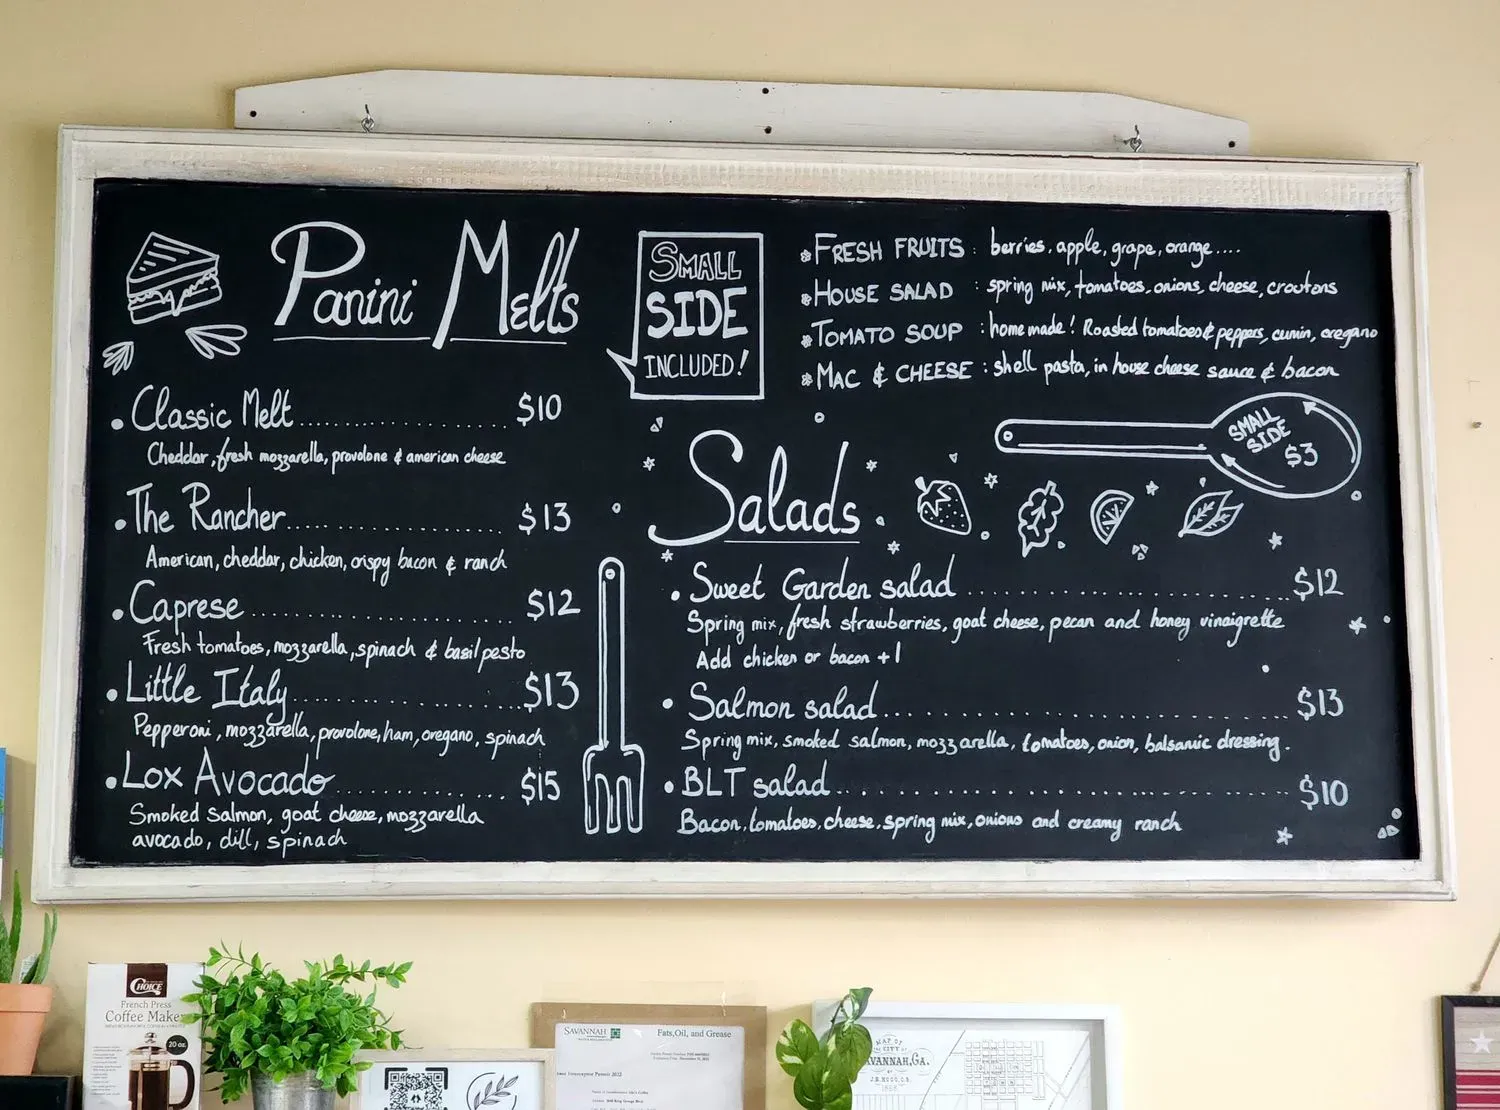 Panini Melts
• Classic Melt.................... $10
Cheddar, fresh mozzarella, provolone & american cheese
• The Rancher.................... $13
American, cheddar, chicken, crispy bacon & ranch
• Caprese.................... $12
Fresh tomatoes, mozzarella, spinach & basil pesto
• Little Italy.................... $13
Pepperoni, mozzarella, provolone, ham, oregano, spinach
• Lox Avocado.................... $15
Smoked salmon, goat cheese, mozzarella
avocado, dill, spinach
SMALL
SIDE
INCLUDED!
FRESH FRUITS : berries, apple, grape, orange....
HOUSE SALAD : spring mix, tomatoes, onions, cheese, croutons
TOMATO SOUP : home made! Roasted tomatoes & peppers, cumin, oregano
MAC & CHEESE : shell pasta, in house cheese sauce & bacon
SMALL
SIDE
$3
Salads
• Sweet Garden salad.................... $12
Spring mix, fresh strawberries, goat cheese, pecan and honey vinaigrette
Add chicken or bacon +1
• Salmon salad.................... $13
Spring mix, smoked salmon, mozzarella, tomatoes, onion, balsamic dressing.
• BLT salad.................... $10
Bacon, tomatoes, cheese, spring mix, onions and creamy ranch
CHOICE
French Press
Coffee Maker
20 oz.
SAVANNAH
Fats, Oil, and Grease
MAP OF
THE CITY OF
SAVANNAH, GA.